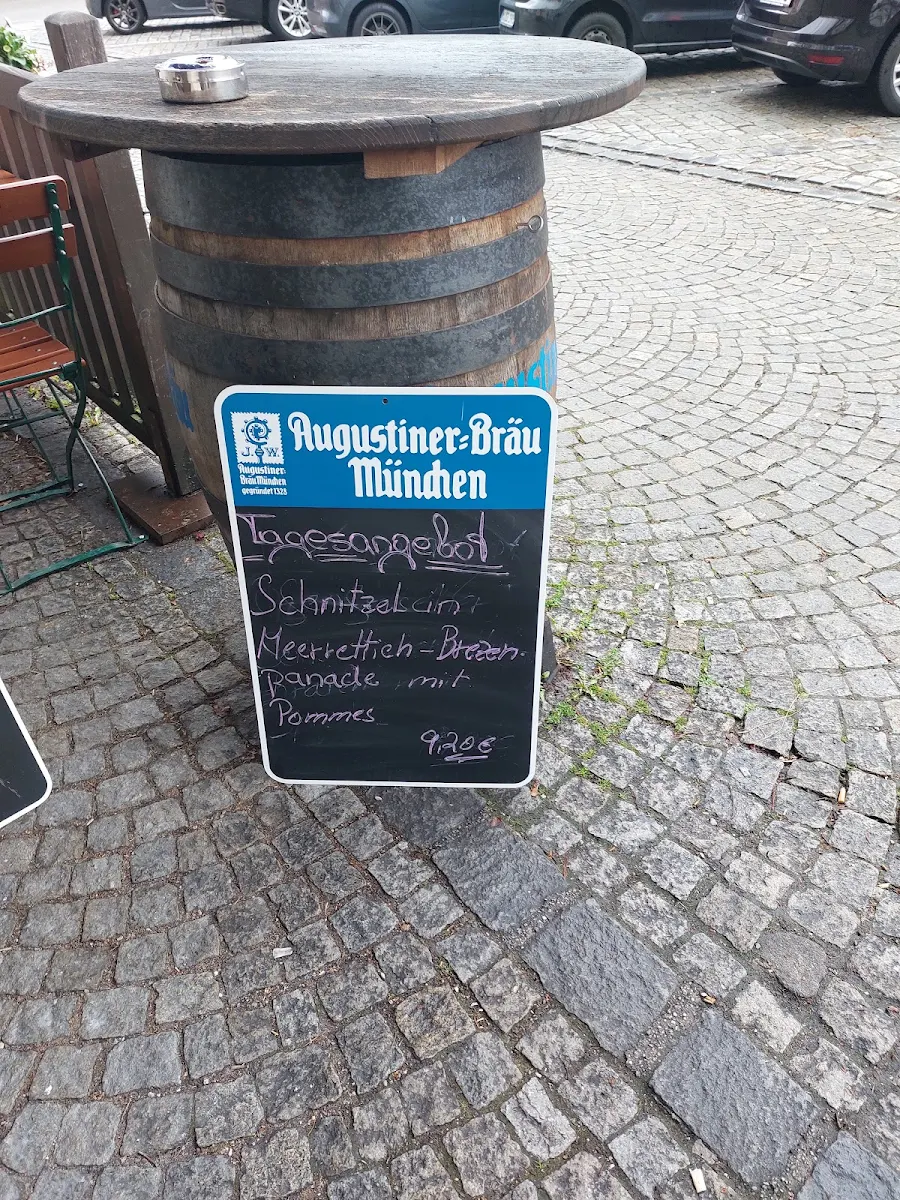 J. W.
Augustiner-
Bräu München
gegründet 1328
Augustiner-Bräu
München
Tagesangebot
Schnitzel in
Meerrettich-Brezen-
Panade mit
Pommes
9,20€